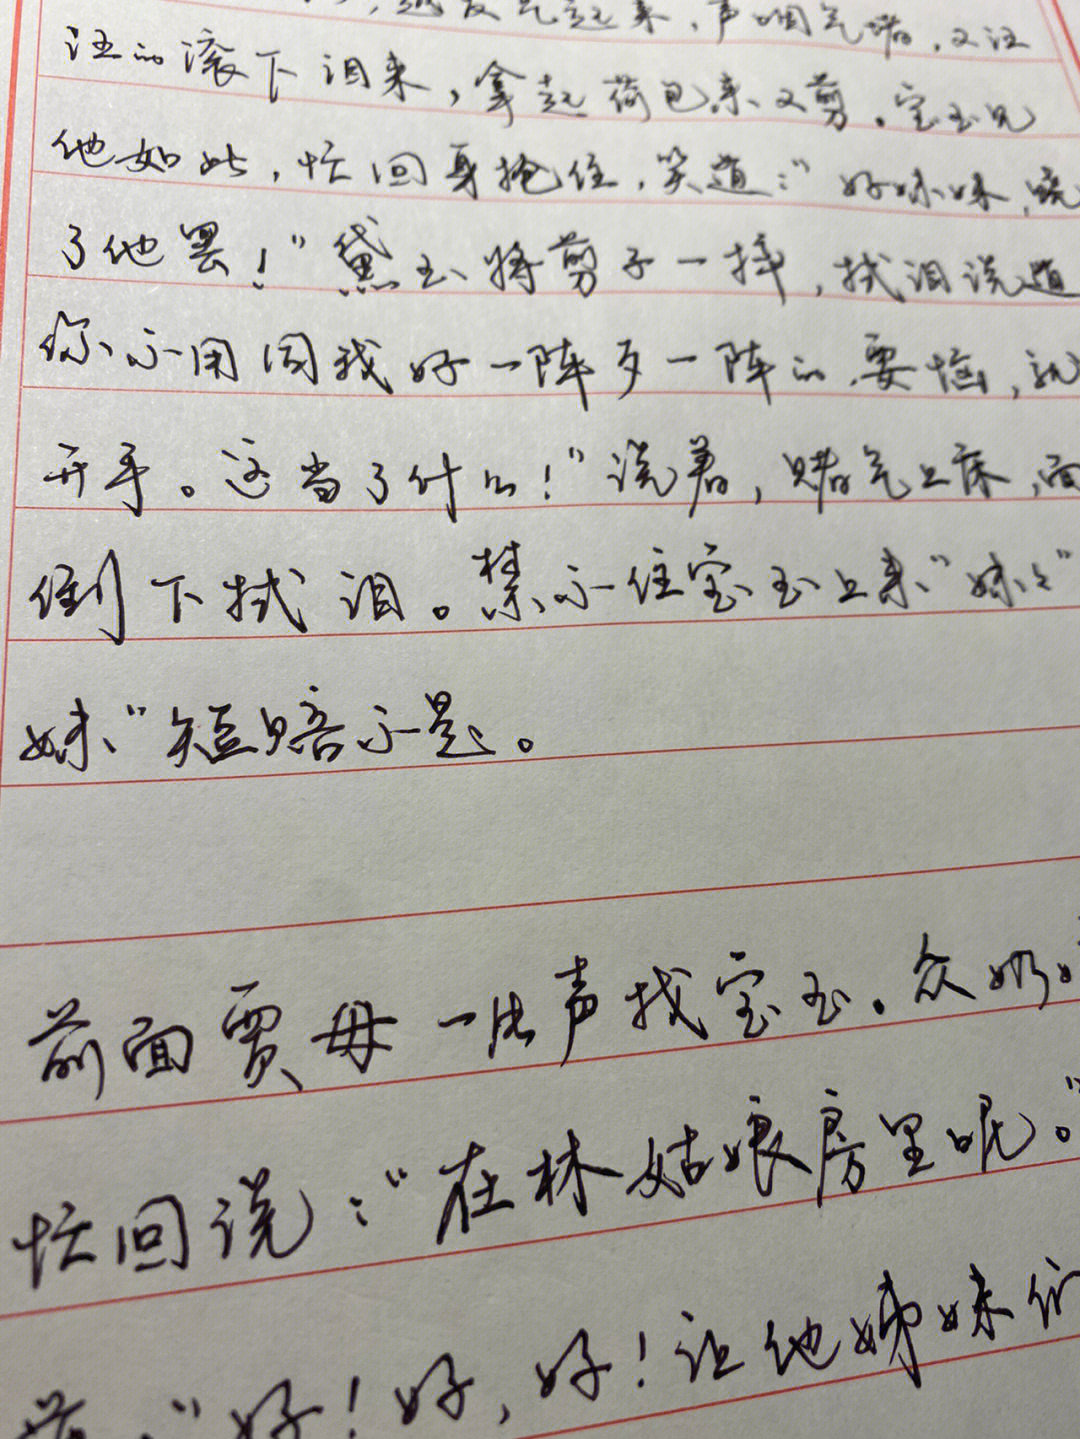 越发气起来，声咽气堵，又汪
汪的滚下泪来，拿起荷包来又剪。宝玉见
他如此，忙回身抢住，笑道：“好妹妹，饶
了他罢！”黛玉将剪子一摔，拭泪说道
你不用同我好一阵歹一阵的，要恼，就
开手。这当了什么！”说着，赌气上床，面
倒下拭泪。禁不住宝玉上来“妹妹”
妹“短赔不是。
前面贾母一片声找宝玉。众奶
忙回说：“在林姑娘房里呢。”
“好！好，好！让他姊妹们